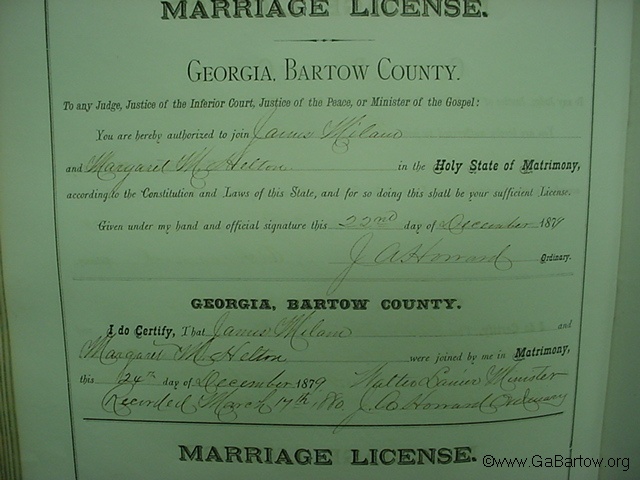 MARRIAGE LICENSE.
GEORGIA, BARTOW COUNTY.
To any Judge, Justice of the Inferior Court, Justice of the Peace, or Minister of the Gospel:
You are hereby authorized to join James Milam
and Margaret M. Helton in the Holy State of Matrimony,
according to the Constitution and Laws of this State, and for so doing this shall be your sufficient License.
Given under my hand and official signature this 22nd day of December 1879
J A Howard Ordinary.
GEORGIA, BARTOW COUNTY.
I do Certify, That James Milam and
Margaret M. Helton were joined by me in Matrimony,
this 24th day of December 1879 Walter Minister
Recorded March 17th 1880 J. A. Howard Ordinary
MARRIAGE LICENSE.
©www.GaBartow.org